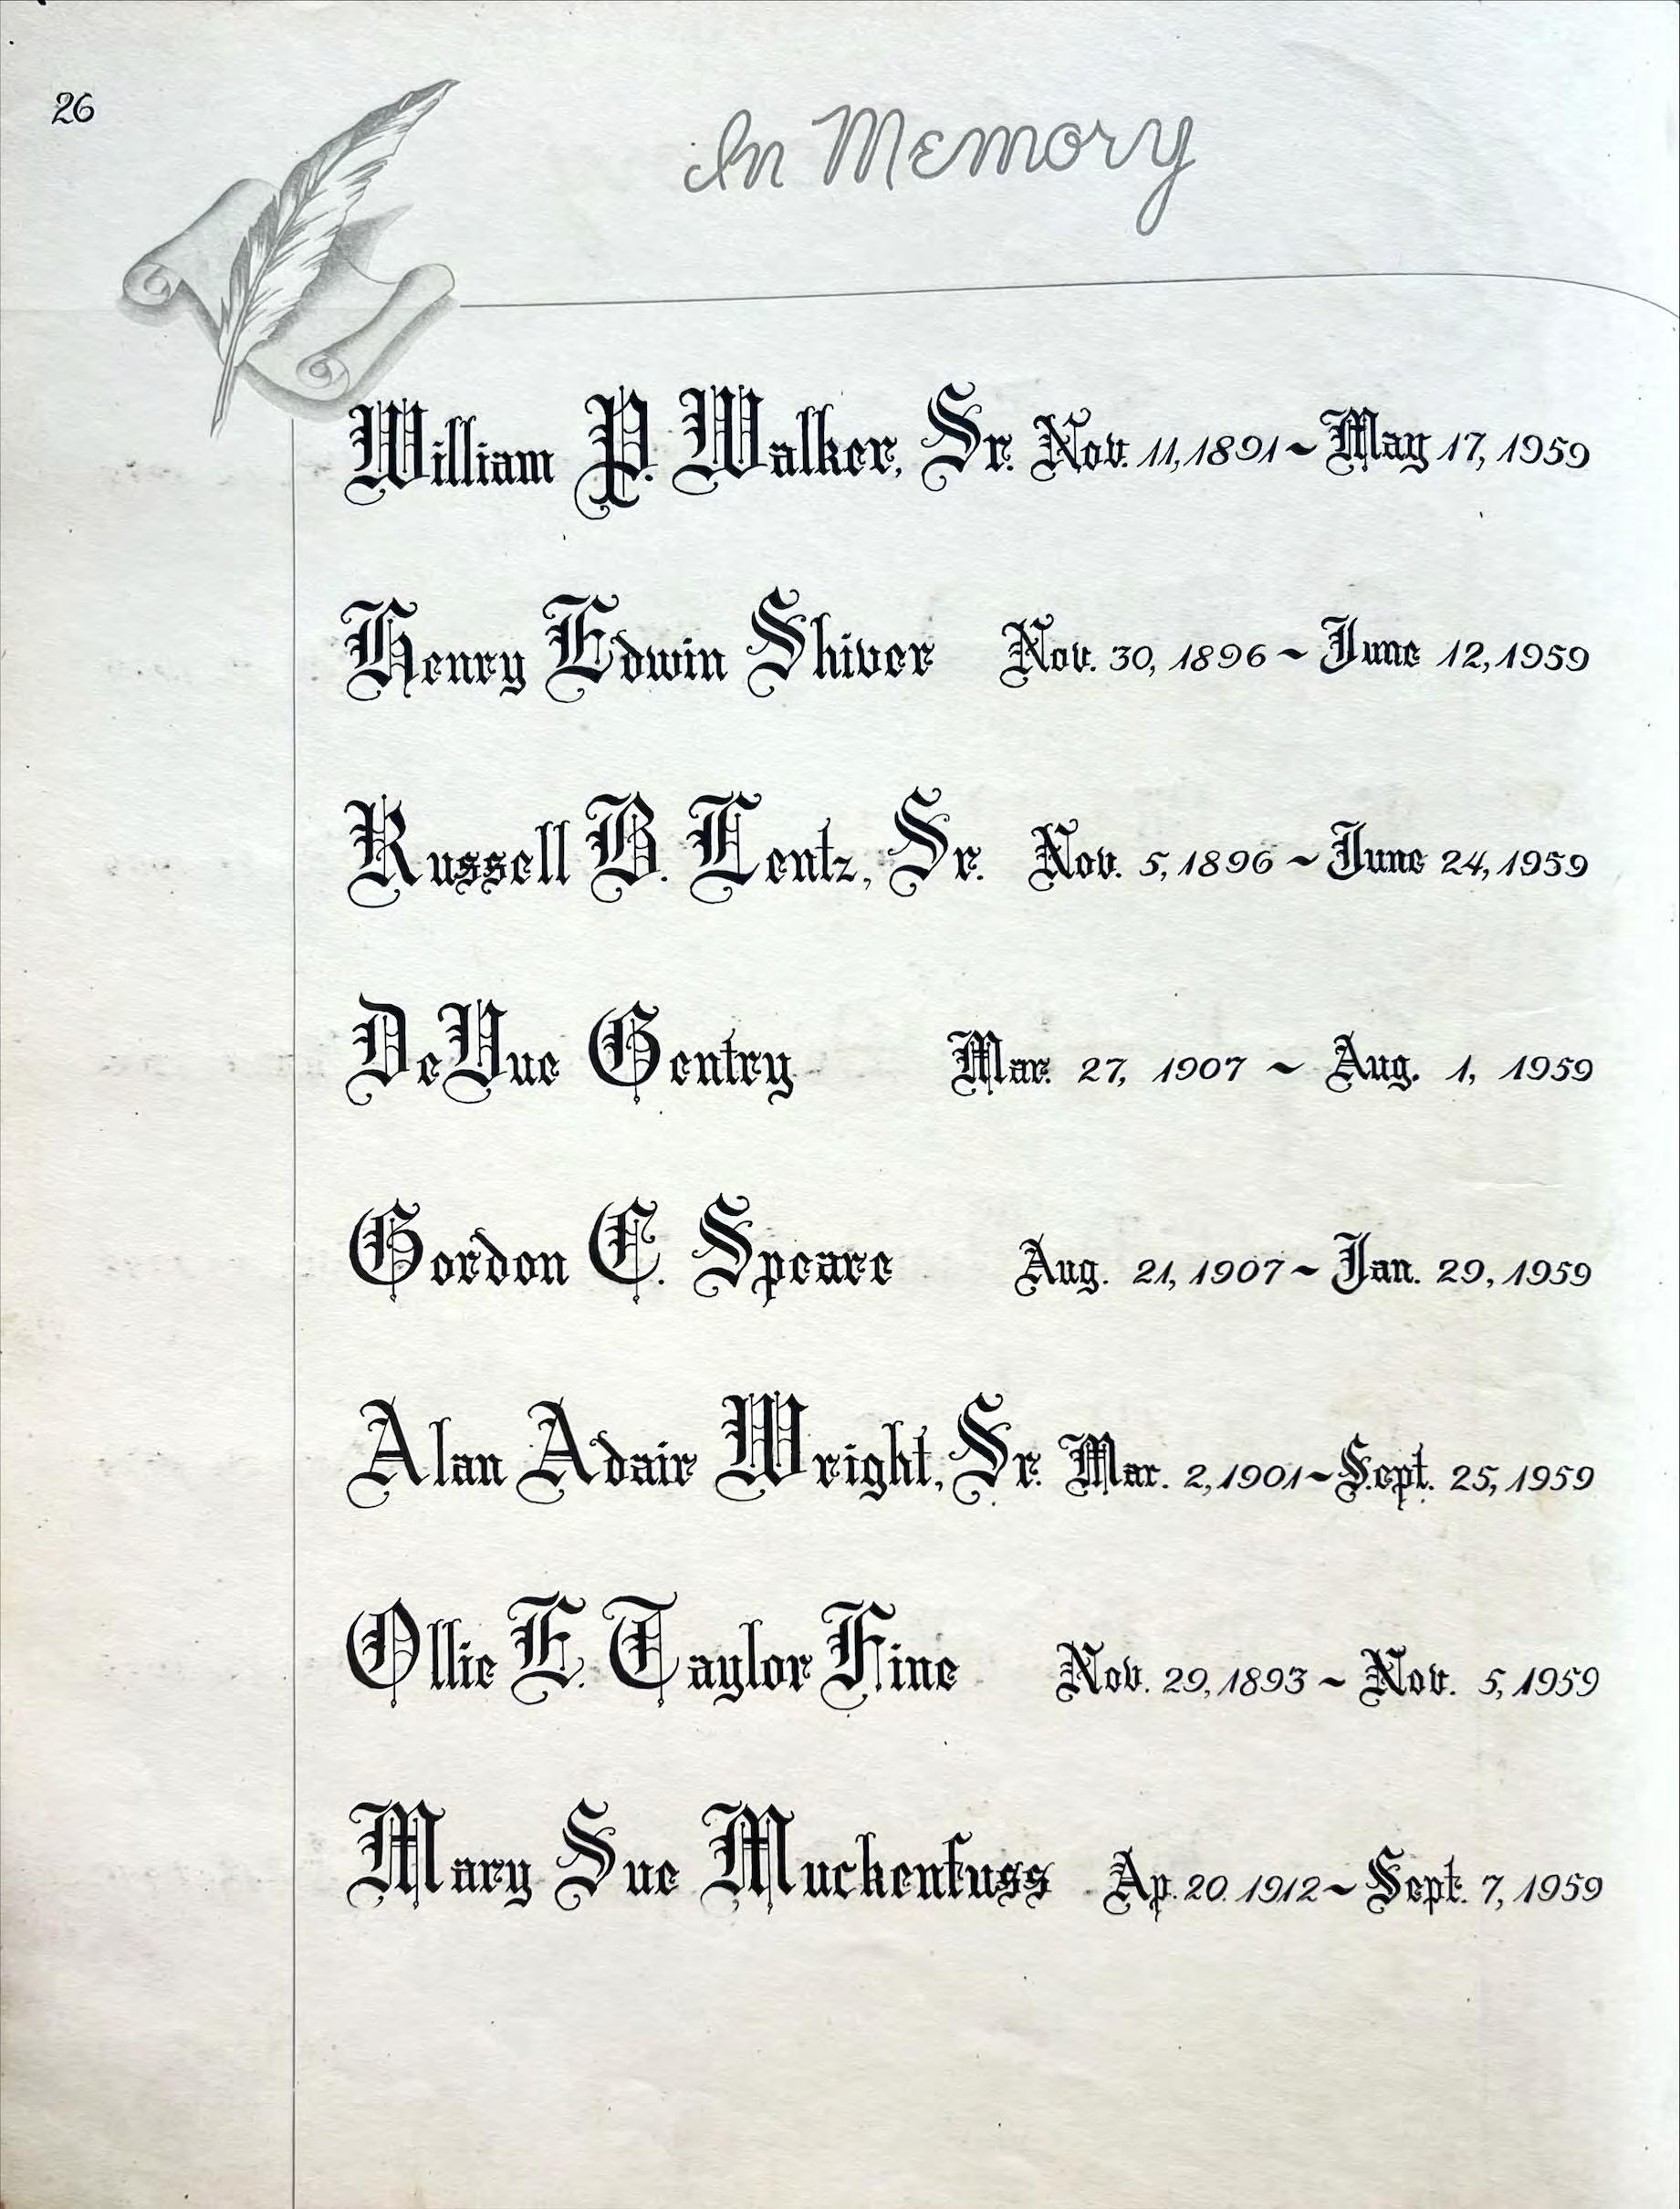 26
In Memory
William P. Walker, Sr. Nov. 11, 1891 ~ May 17, 1959
Henry Edwin Shiver Nov. 30, 1896 ~ June 12, 1959
Russell B. Lentz, Sr. Nov. 5, 1896 ~ June 24, 1959
DeVue Gentry Mar. 27, 1907 ~ Aug. 1, 1959
Gordon C. Speare Aug. 21, 1907 ~ Jan. 29, 1959
Alan Adair Wright, Sr. Mar. 2, 1901 ~ Sept. 25, 1959
Ollie E. Taylor Fine Nov. 29, 1893 ~ Nov. 5, 1959
Mary Sue Muckenfuss Ap. 20. 1912 ~ Sept. 7, 1959